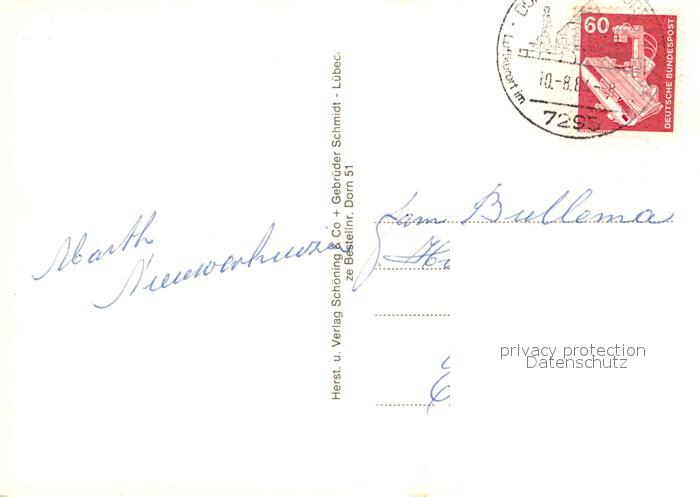 Luftkurort im
10.-8.8
7295
60
DEUTSCHE BUNDESPOST
Herst. u. Verlag Schöning & Co + Gebrüder Schmidt - Lübec
ze Bestellnr. Dorn 51
Marth
Nieuwenhuizie
Fam Bullema
privacy protection
Datenschutz